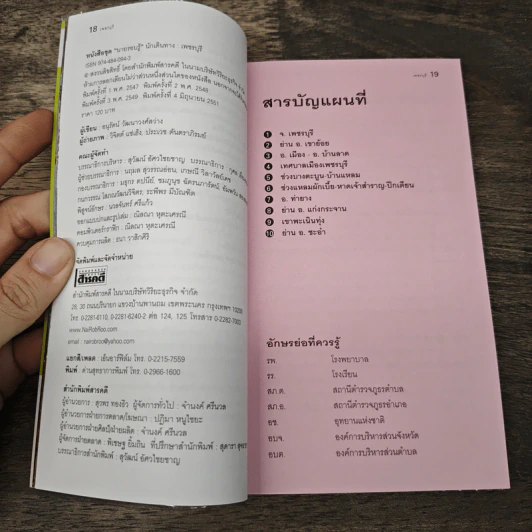 18 เพชรบุรี
หนังสือชุด "นายรอบรู้" นักเดินทาง : เพชรบุรี
ISBN 974-484-094-3
© สงวนลิขสิทธิ์ โดยสำนักพิมพ์สารคดี ในนามบริษัทวิริยะธุรกิจ
ห้ามการลอกเลียนไม่ว่าส่วนหนึ่งส่วนใดของหนังสือ
พิมพ์ครั้งที่ 1 พ.ศ. 2547 พิมพ์ครั้งที่ 2 พ.ศ. 2548
พิมพ์ครั้งที่ 3 พ.ศ. 2549 พิมพ์ครั้งที่ 4 มิถุนายน 2551
ราคา 120 บาท
ผู้เขียน : อนุรัตน์ วัฒนาวงศ์สว่าง
ผู้ถ่ายภาพ : วิจิตต์ แซ่เฮ้ง, ประเวช ตันตราภิรมย์
คณะผู้จัดทำ
บรรณาธิการบริหาร : สุวัฒน์ อัศวไชยชาญ บรรณาธิการ
ผู้ช่วยบรรณาธิการ : นฤมล สุวรรณอ่อน,
กองบรรณาธิการ :
พิสูจน์อักษร : นวลจันทร์ ศรีแก้ว
ออกแบบปกและรูปเล่ม : ณิลณา หุตะเศรณี
คอมพิวเตอร์กราฟิก : ณิลณา หุตะเศรณี
ควบคุมการผลิต : ธนา วาสิกศิริ
จัดพิมพ์และจัดจำหน่าย
สารคดี
สำนักพิมพ์สารคดี ในนามบริษัทวิริยะธุรกิจ จำกัด
28, 30 ถนนปรินายก แขวงบ้านพานถม เขตพระนคร กรุงเทพฯ 10200
โทร. 0-2281-6110, 0-2281-6240-2 ต่อ 124, 125 โทรสาร 0-2282-7003
www.NaiRobRoo.com
email : nairobroo@yahoo.com
แยกสี/เพลต : เอ็นอาร์ฟิล์ม โทร. 0-2215-7559
พิมพ์ : ด่านสุทธาการพิมพ์ โทร. 0-2966-1600
สำนักพิมพ์สารคดี
ผู้อำนวยการ : สุวพร ทองธิว ผู้จัดการทั่วไป : จำนงค์ ศรีนวล
ผู้อำนวยการฝ่ายการตลาด/โฆษณา : ปฏิมา หนูไชยะ
ผู้อำนวยการฝ่ายศิลป์/ฝ่ายผลิต : จำนงค์ ศรีนวล
ผู้จัดการฝ่ายตลาด : พิเชษฐ ยิ้มถิน ที่ปรึกษาสำนักพิมพ์ : สุดารา
บรรณาธิการสำนักพิมพ์ : สุวัฒน์ อัศวไชยชาญ
เพชรบุรี 19
สารบัญแผนที่
1 จ. เพชรบุรี
2 ย่าน อ. เขาย้อย
3 อ. เมือง - อ. บ้านลาด
4 เทศบาลเมืองเพชรบุรี
5 ช่วงบางตะบูน-บ้านแหลม
6 ช่วงแหลมผักเบี้ย-หาดเจ้าสำราญ-ปึกเตียน
7 อ. ท่ายาง
8 ย่าน อ. แก่งกระจาน
9 เขาพะเนินทุ่ง
10 ย่าน อ. ชะอำ
อักษรย่อที่ควรรู้
รพ. โรงพยาบาล
รร. โรงเรียน
สภ.ต. สถานีตำรวจภูธรตำบล
สภ.อ. สถานีตำรวจภูธรอำเภอ
อช. อุทยานแห่งชาติ
อบจ. องค์การบริหารส่วนจังหวัด
อบต. องค์การบริหารส่วนตำบล